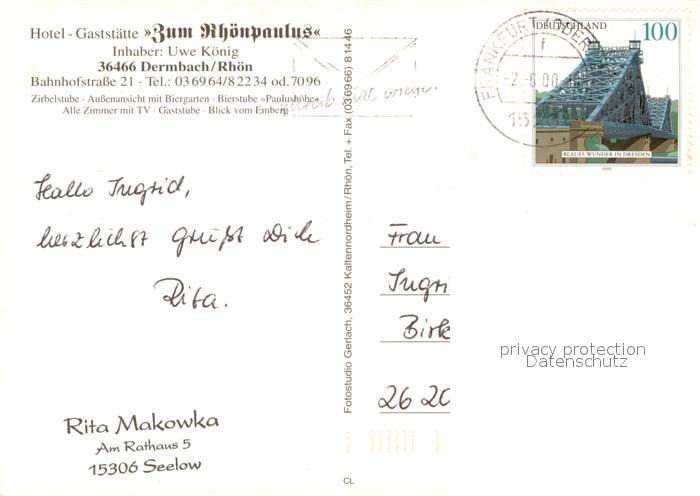 Hotel - Gaststätte »Zum Rhönpaulus«
Inhaber: Uwe König
36466 Dermbach/Rhön
Bahnhofstraße 21 · Tel.: 036964/82234 od. 7096
Zirbelstube · Außenansicht mit Biergarten · Bierstube »Paulushöhle«
Alle Zimmer mit TV · Gaststube · Blick vom Emberg
DEUTSCHLAND
100
BLAUES WUNDER IN DRESDEN
2000
FRANKFURT (ODER)
Hallo Ingrid,
herzlichst grüßt Dich
Rita.
Rita Makowka
Am Rathaus 5
15306 Seelow
Fotostudio Gerlach, 36452 Kaltennordheim/Rhön, Tel. + Fax (036966) 81446
CL
Frau
Ingri
Birk
26 20
privacy protection
Datenschutz